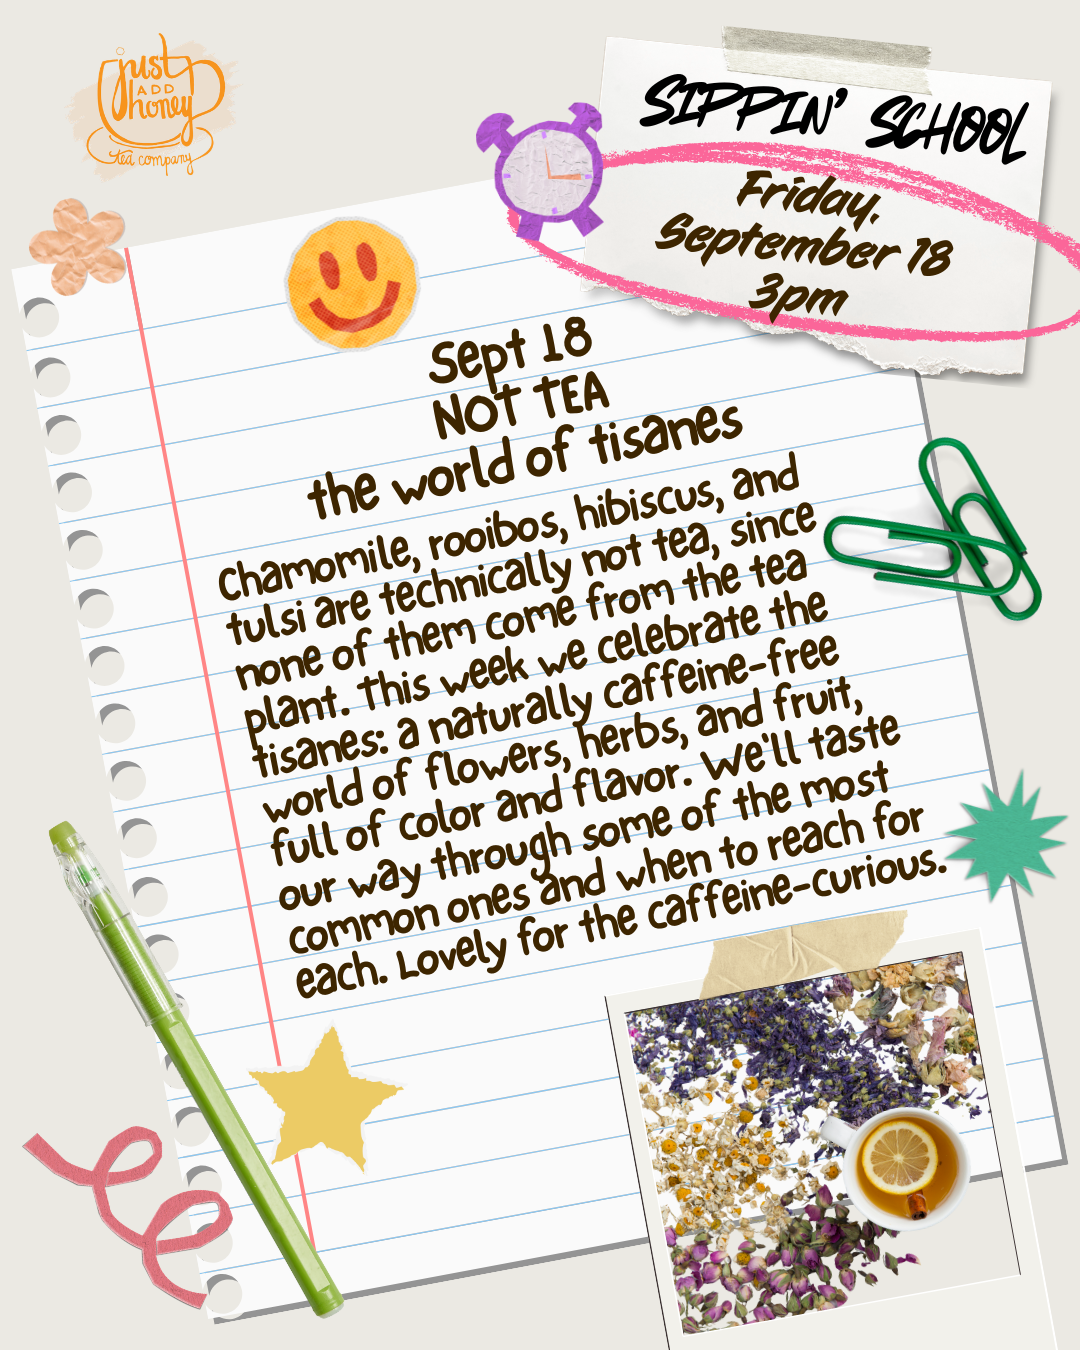 just
ADD
honey
tea company
SIPPIN' SCHOOL
Friday,
September 18
3pm
Sept 18
NOT TEA
the world of tisanes
Chamomile, rooibos, hibiscus, and
tulsi are technically not tea, since
none of them come from the tea
plant. This week we celebrate the
tisanes: a naturally caffeine-free
world of flowers, herbs, and fruit,
full of color and flavor. We'll taste
our way through some of the most
common ones and when to reach for
each. Lovely for the caffeine-curious.